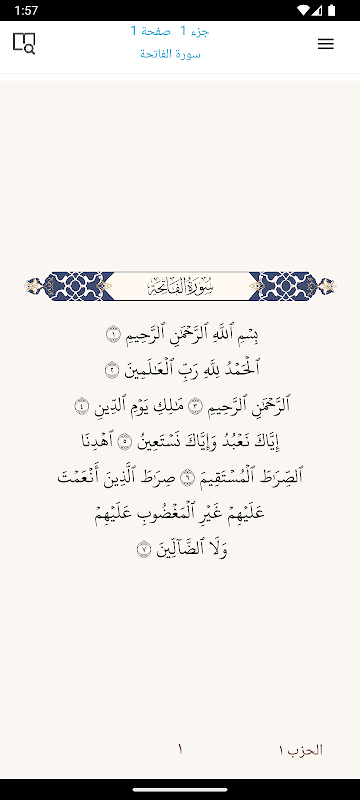 1:57
جزء 1 صفحة 1
سورة الفاتحة
سُورَةُ الفَاتِحَةِ
بِسْمِ ٱللَّهِ ٱلرَّحْمَٰنِ ٱلرَّحِيمِ ١
ٱلْحَمْدُ لِلَّهِ رَبِّ ٱلْعَٰلَمِينَ ٢
ٱلرَّحْمَٰنِ ٱلرَّحِيمِ ٣ مَٰلِكِ يَوْمِ ٱلدِّينِ ٤
إِيَّاكَ نَعْبُدُ وَإِيَّاكَ نَسْتَعِينُ ٥ ٱهْدِنَا
ٱلصِّرَٰطَ ٱلْمُسْتَقِيمَ ٦ صِرَٰطَ ٱلَّذِينَ أَنْعَمْتَ
عَلَيْهِمْ غَيْرِ ٱلْمَغْضُوبِ عَلَيْهِمْ
وَلَا ٱلضَّآلِّينَ ٧
الحزب ١
١